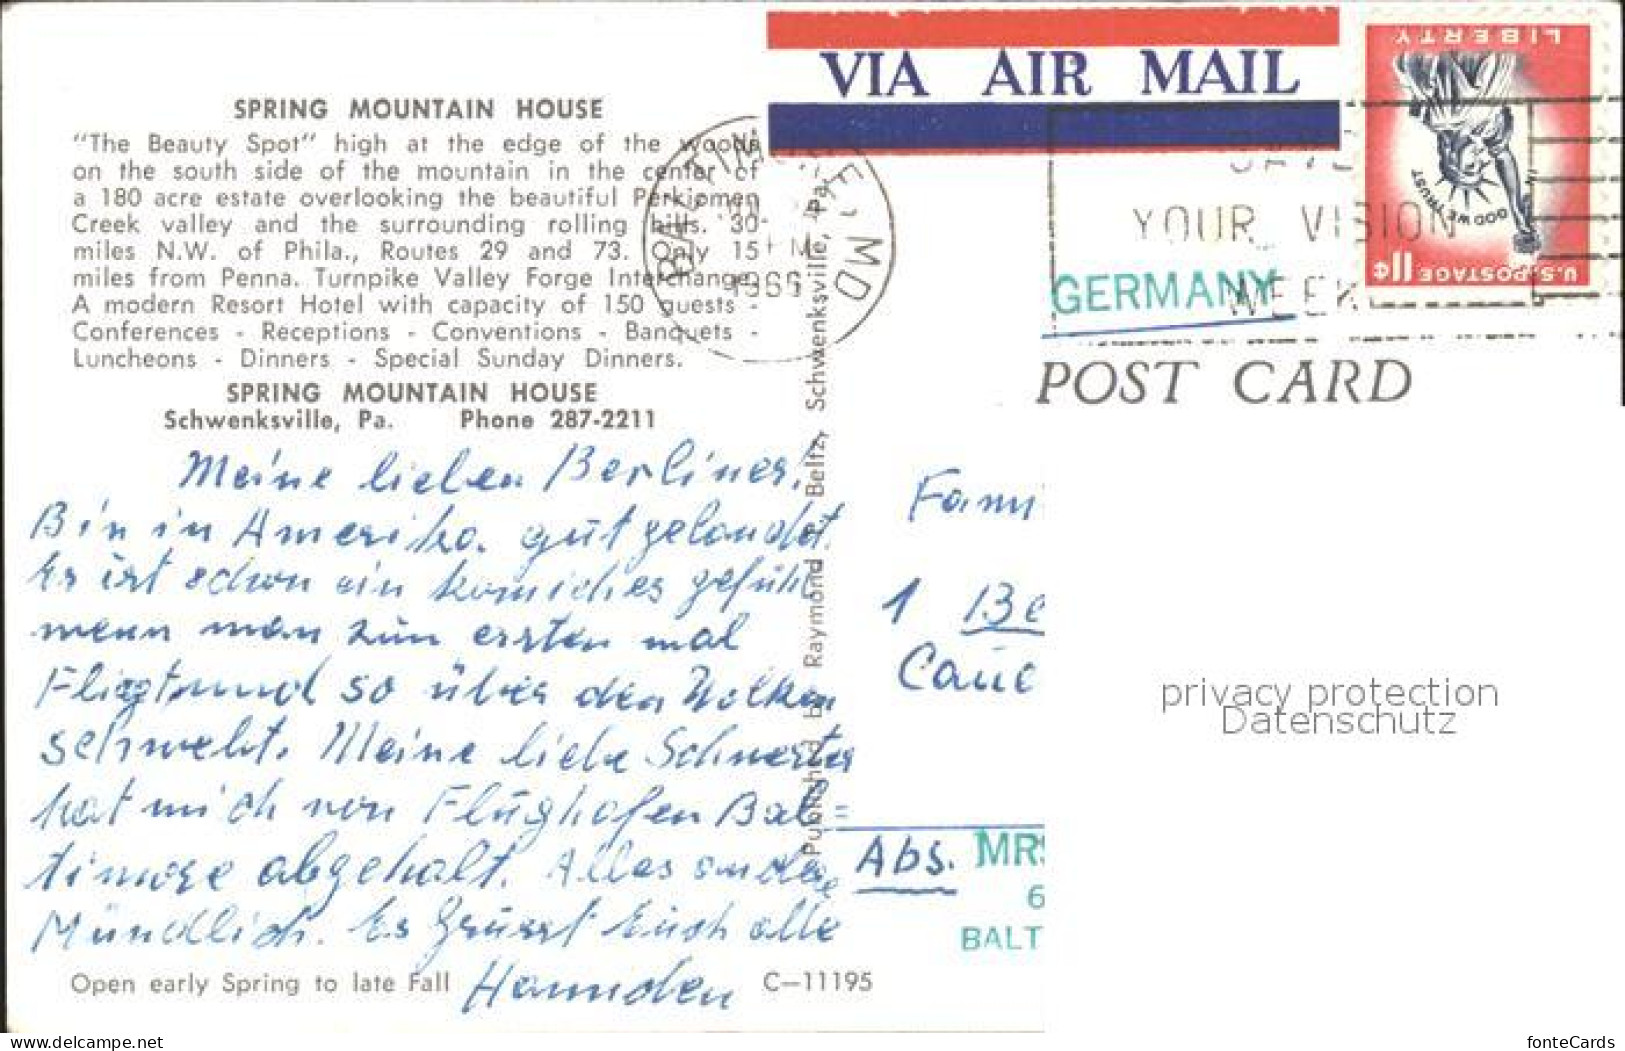 VIA AIR MAIL
LIBERTY
IN GOD WE TRUST
U.S. POSTAGE 11¢
SPRING MOUNTAIN HOUSE
"The Beauty Spot" high at the edge of the woods
on the south side of the mountain in the center of
a 180 acre estate overlooking the beautiful Perkiomen
Creek valley and the surrounding rolling hills. 30-
miles N.W. of Phila., Routes 29 and 73. Only 15
miles from Penna. Turnpike Valley Forge Interchange.
A modern Resort Hotel with capacity of 150 guests -
Conferences - Receptions - Conventions - Banquets -
Luncheons - Dinners - Special Sunday Dinners.
SPRING MOUNTAIN HOUSE
Schwenksville, Pa. Phone 287-2211
MD
PM
YOUR VISION
WEEK
GERMANY
POST CARD
Published by Raymond Beltz, Schwenksville, Pa.
Meine lieben Berliner!
Bin in Amerika gut gelandet.
Es ist schon ein komiches gefühl
wenn man zum ersten mal
Fliegt und so über den Wolken
schwebt. Meine liebe Schwester
hat mich von Flughafen Bal=
timore abgeholt. Alles andere
Mündlich. Es Grüsst Euch alle
Hannchen
Fami
1 Be
Caue
Abs. MRS
6
BALT
Open early Spring to late Fall
C-11195
privacy protection
Datenschutz
www.delcampe.net
fonteCards